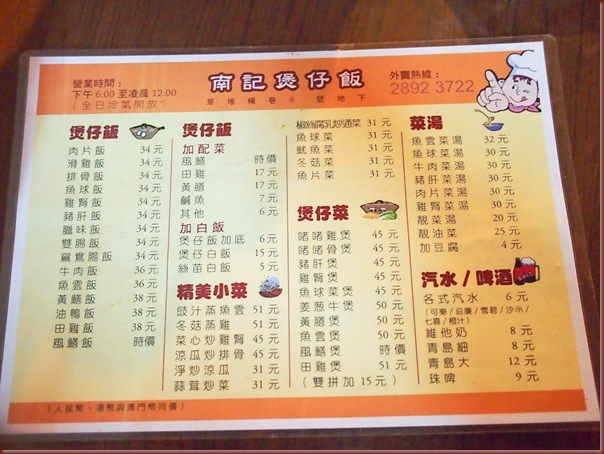 營業時間：
下午 6:00 至凌晨 12:00
（全日冷氣開放）
南記煲仔飯
草堆橫巷 6 號地下
外賣熱線：
2892 3722
煲仔飯
肉片飯 34 元
滑雞飯 34 元
排骨飯 34 元
魚球飯 34 元
雞腎飯 34 元
豬肝飯 34 元
臘味飯 34 元
雙腸飯 34 元
鴛鴦腸飯 34 元
牛肉飯 36 元
魚雲飯 36 元
黃鱔飯 38 元
油鴨飯 38 元
田雞飯 38 元
風鱔飯 時價
煲仔飯
加配菜
風鱔 時價
田雞 17 元
黃鱔 17 元
鹹魚 7 元
其他 6 元
加白飯
煲仔飯加底 6 元
煲仔白飯 15 元
絲苗白飯 5 元
精美小菜
豉汁蒸魚雲 51 元
冬菇蒸雞 51 元
菜心炒雞腎 45 元
涼瓜炒排骨 45 元
淨炒涼瓜 31 元
蒜茸炒菜 31 元
椒絲腐乳炒通菜 31 元
魚球菜 31 元
魷魚菜 31 元
冬菇菜 31 元
魚片菜 31 元
煲仔菜
啫啫雞煲 45 元
啫啫骨煲 45 元
豬肝煲 45 元
雞腎煲 45 元
魚球菜煲 45 元
姜葱牛煲 50 元
黃鱔煲 50 元
魚雲煲 50 元
風鱔煲 時價
田雞煲 51 元
（雙拼加 15 元）
菜湯
魚雲菜湯 32 元
魚球菜湯 30 元
牛肉菜湯 30 元
豬肝菜湯 30 元
肉片菜湯 30 元
雞腎菜湯 30 元
靚菜湯 20 元
靚油菜 25 元
加豆腐 4 元
汽水 / 啤酒
各式汽水 6 元
（可樂 / 忌廉 / 雪碧 / 沙示 /
七喜 / 橙汁）
維他奶 8 元
青島細 8 元
青島大 12 元
珠啤 9 元
（人民幣、港幣與澳門幣同價）